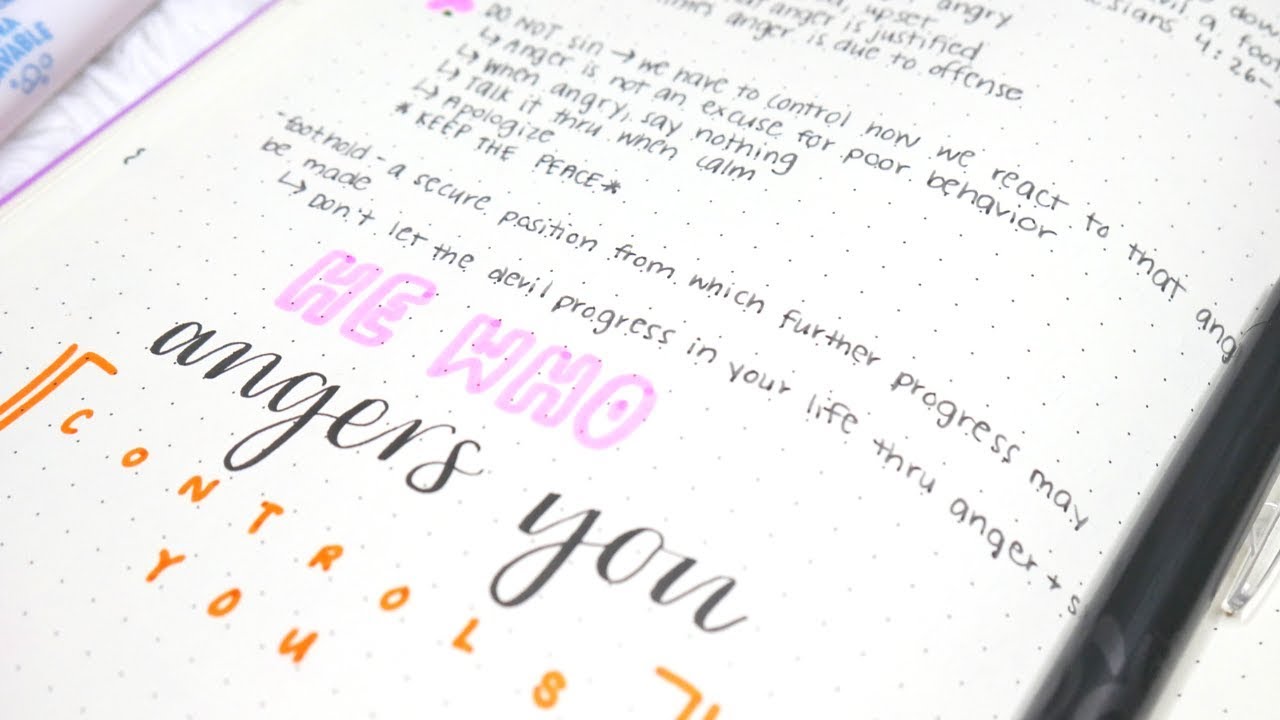 angry
down
a foot
upset
sians 4:26-
anger is justified
anger is due to offense
DO NOT sin → we have to control how we react to that ang
↳ Anger is not an excuse for poor behavior
↳ When angry, say nothing
↳ Talk it thru when calm
↳ Apologize
* KEEP THE PEACE*
-foothold - a secure position from which further progress may
be made
↳ Don't let the devil progress in your life thru anger + s
HE WHO
angers you
CONTROLS
YOU